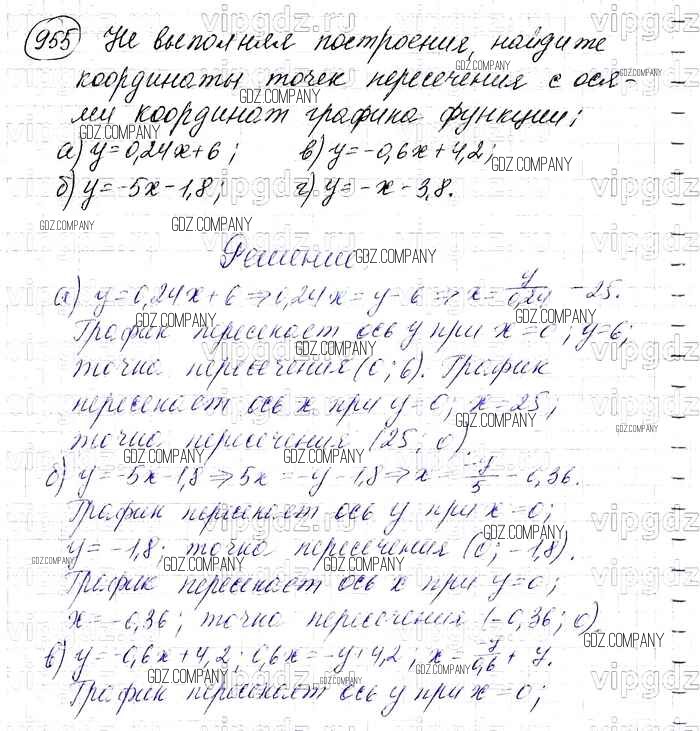 955 Не выполняя построения, найдите
координаты точек пересечения с ося-
ми координат графика функции:
а) y=0,24x+6; в) y=-0,6x+4,2;
б) y=-5x-1,8; г) y=-x-3,8.
Решение:
а) y=0,24x+6 ⇒ 0,24x=y-6 ⇒ x= y/0,24 -25.
График пересекает ось y при x=0; y=6;
точка пересечения (0; 6). График
пересекает ось x при y=0; x=25;
точка пересечения (25; 0)
б) y=-5x-1,8 ⇒ 5x=-y-1,8 ⇒ x= -y/5 -0,36.
График пересекает ось y при x=0;
y=-1,8; точка пересечения (0; -1,8).
График пересекает ось x при y=0;
x=-0,36; точка пересечения (-0,36; 0)
в) y=-0,6x+4,2; 0,6x=-y+4,2; x= -y/0,6 + 7.
График пересекает ось y при x=0;